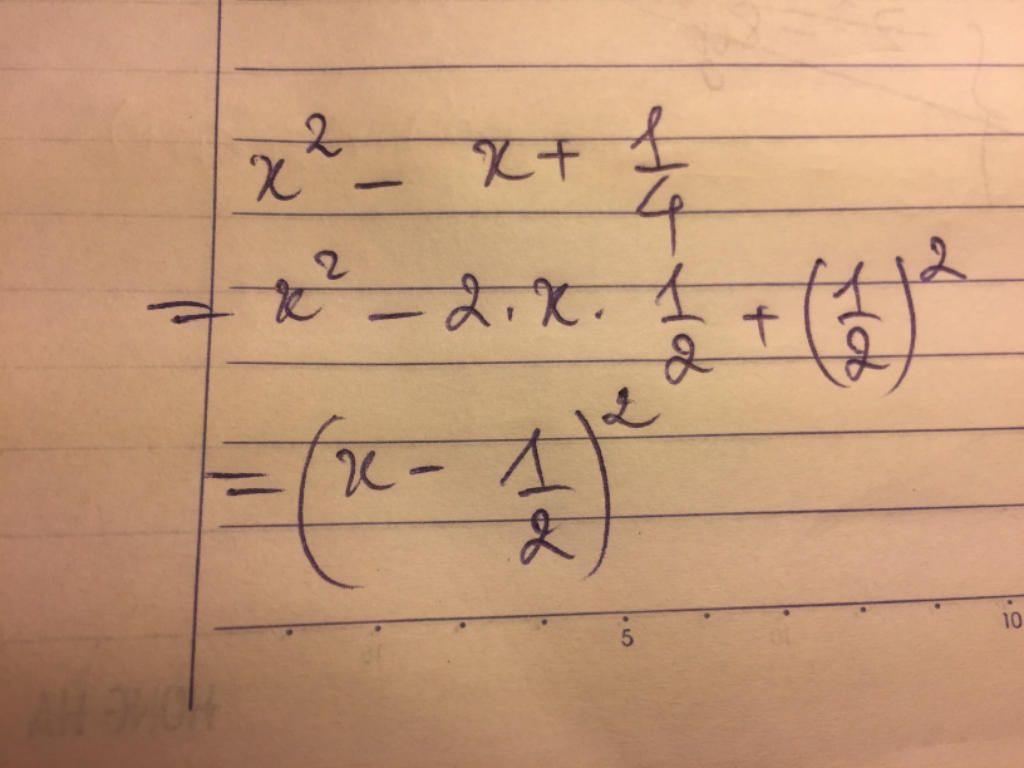 x² - x + 1/4
= x² - 2 · x · 1/2 + (1/2)²
= (x - 1/2)²
5 10